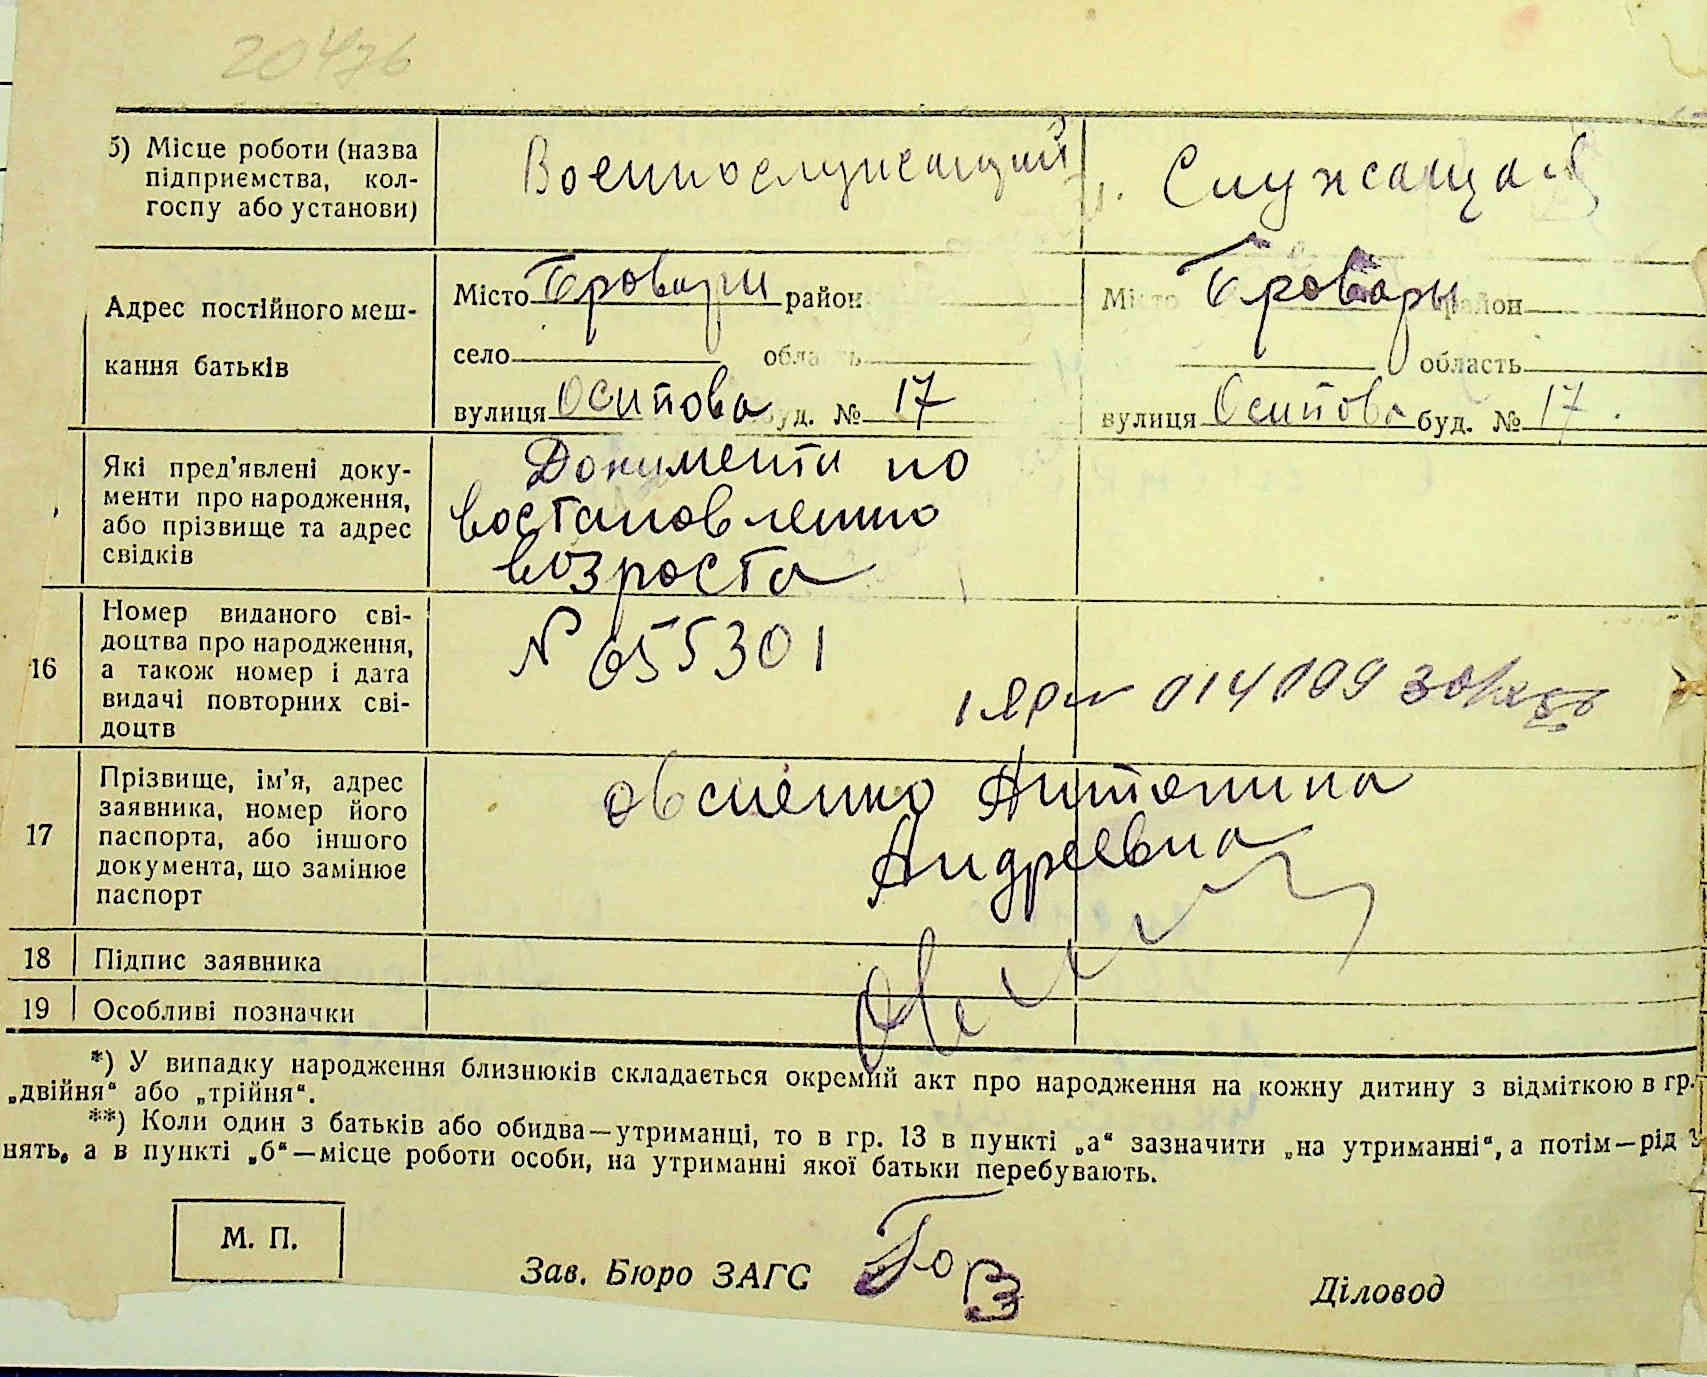 20476
б) Місце роботи (назва підприємства, колгоспу або установи)
Военнослужащий
Служащая
Адрес постійного мешкання батьків
Місто Бровари район
село область
вулиця Осипова буд. № 17
Місто Бровары район
область
вулиця Осипова буд. № 17.
Які пред'явлені документи про народження, або прізвище та адрес свідків
Документи по
востановленню
возроста
16 Номер виданого свідоцтва про народження, а також номер і дата видачі повторних свідоцтв
№ 655301
014109
17 Прізвище, ім'я, адрес заявника, номер його паспорта, або іншого документа, що замінює паспорт
Овсиенко Антонина
Андреевна
18 Підпис заявника
19 Особливі позначки
*) У випадку народження близнюків складається окремий акт про народження на кожну дитину з відміткою в гр.
„двійня“ або „трійня“.
**) Коли один з батьків або обидва—утриманці, то в гр. 13 в пункті „а“ зазначити „на утриманні“, а потім—рід з
нять, а в пункті „б“—місце роботи особи, на утриманні якої батьки перебувають.
М. П.
Зав. Бюро ЗАГС
Діловод